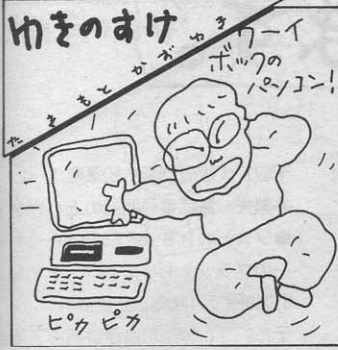 ゆきのすけ
たきもとかおゆき
ウーイ
ボックの
パソコン!
ピカピカ